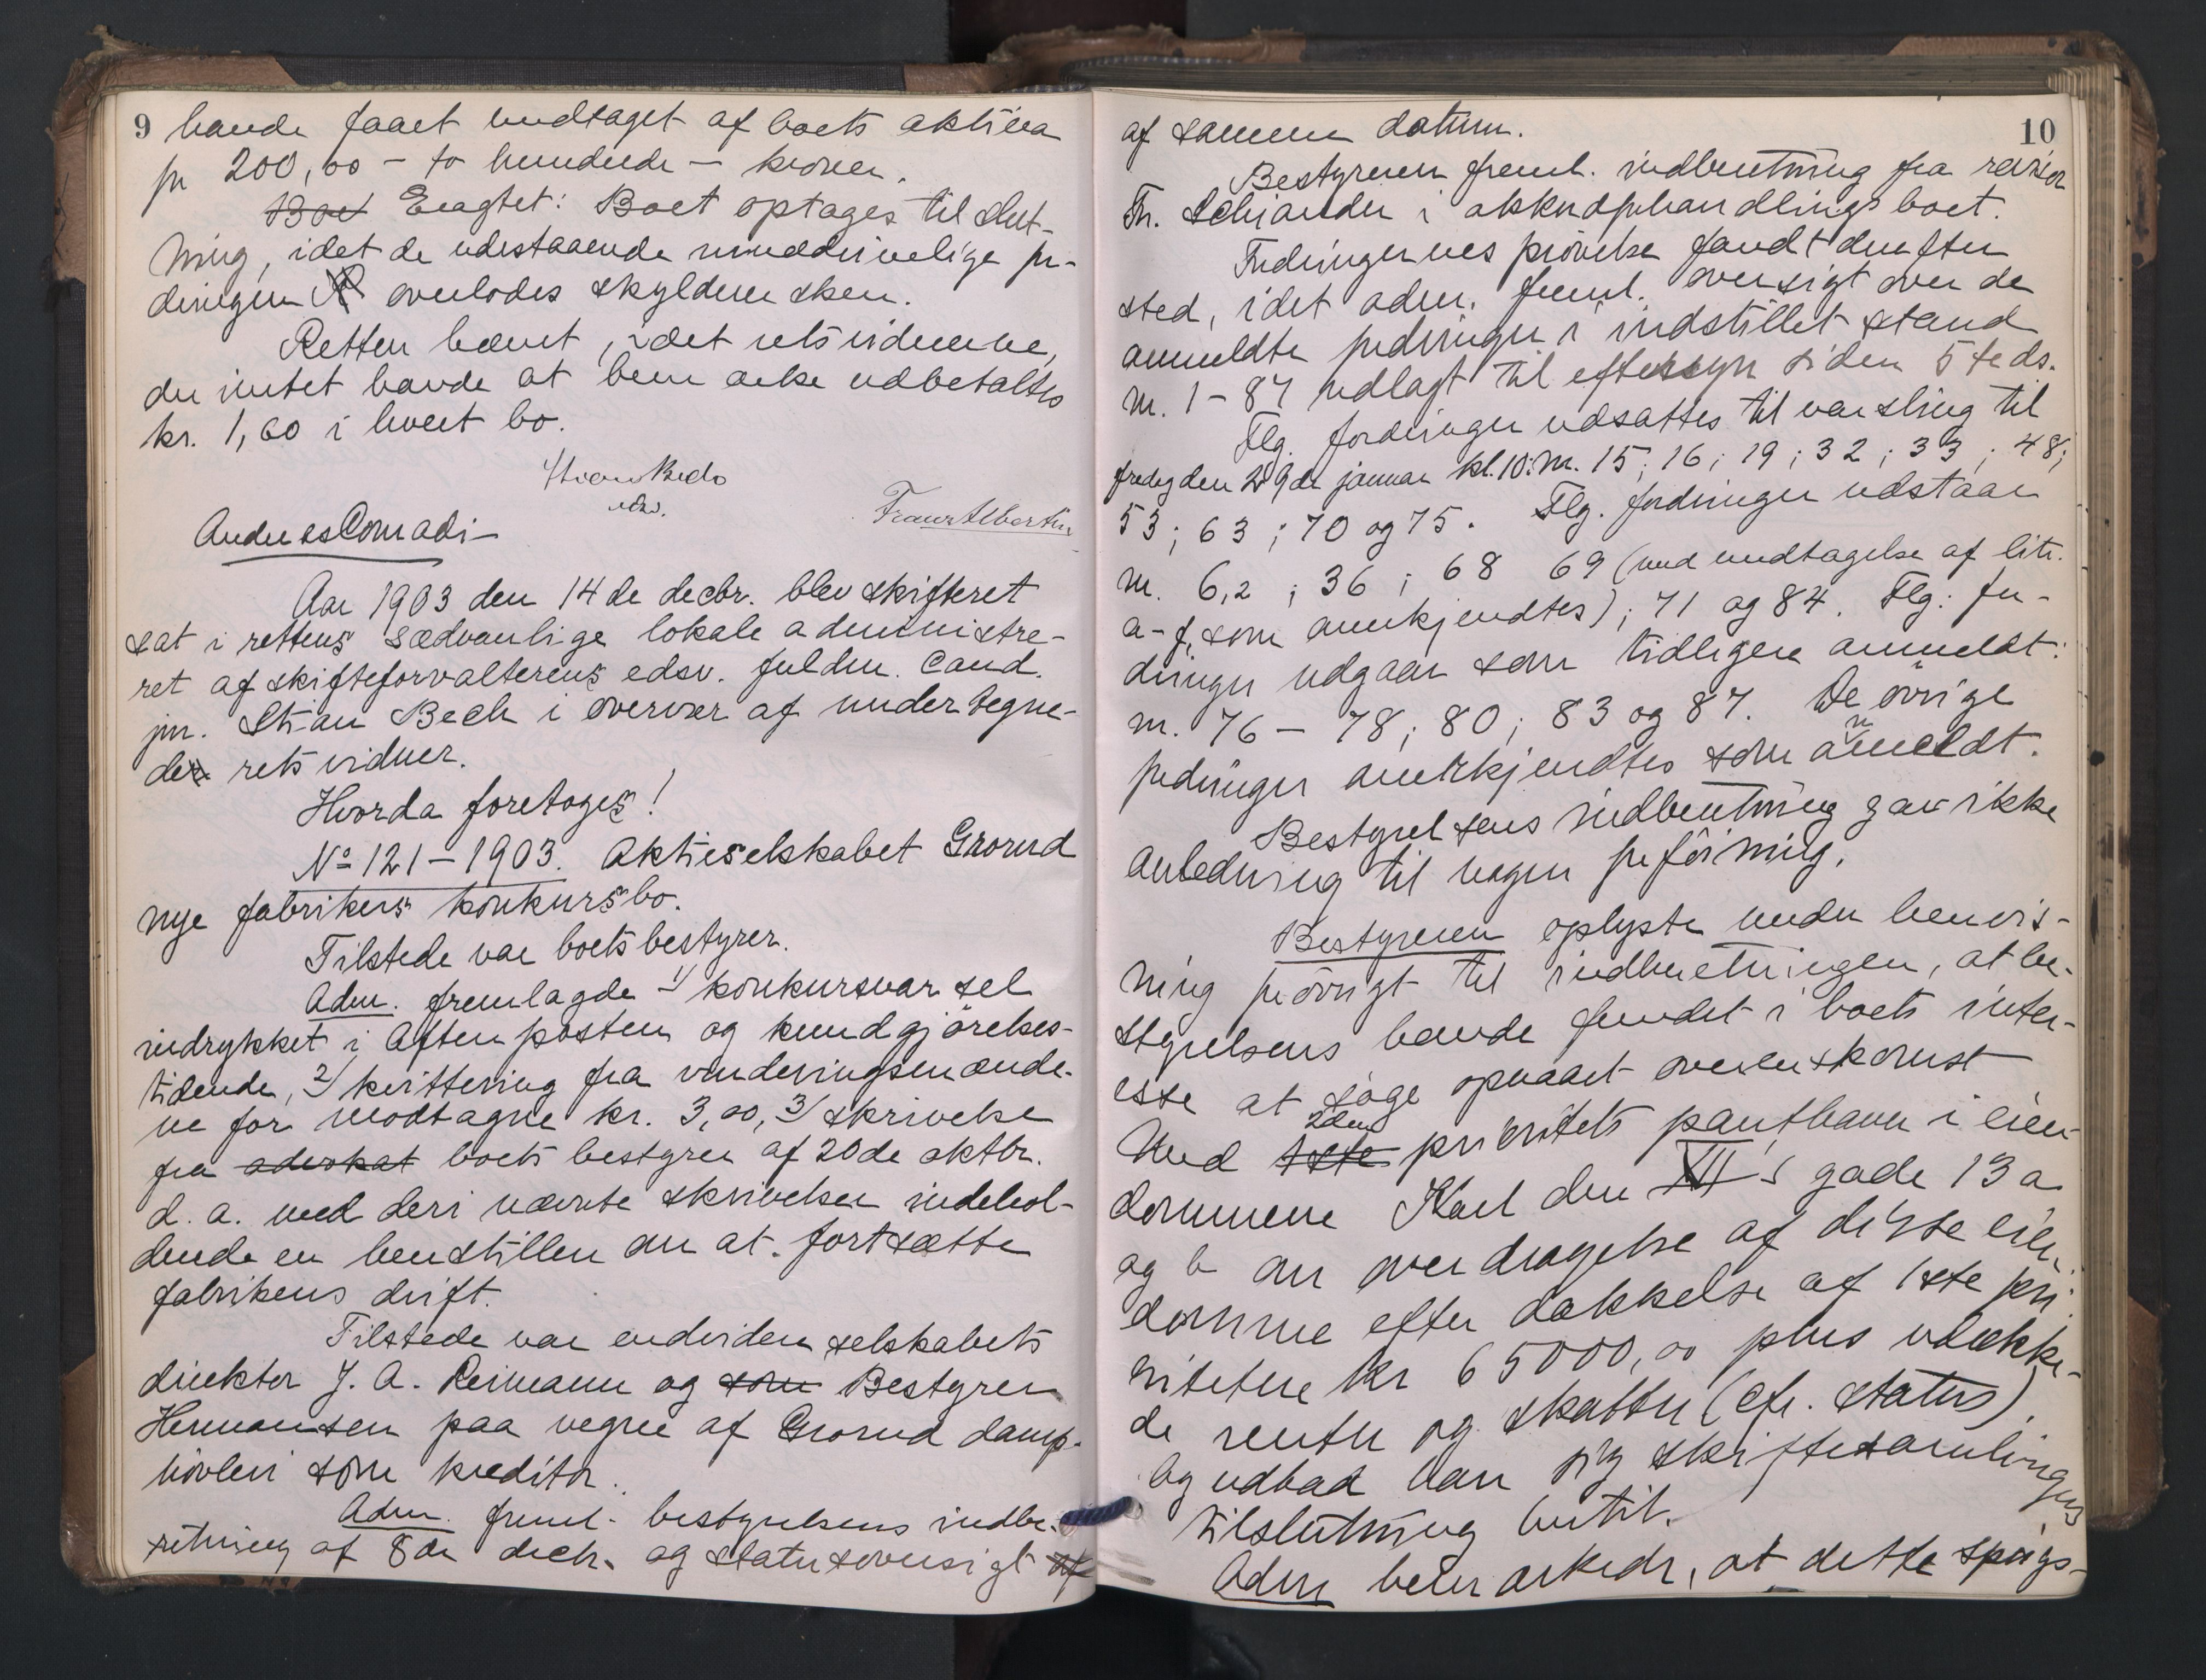 9 havde faaet undtaget af boets aktiva
for 200,00 - to hundrede - kroner.
Boet Eragtet: Boet optages til slut-
ning, idet de udestaaende uinddrivelige for-
dringer overlodes skyldnersken.
Retten hævet, idet retsvidnerne,
der intet havde at bemærke udbetaltes
kr. 1,60 i hvert bo.
Stian Bech
edsv.
Franz Albertin
Anders Conradi
Aar 1903 den 14de decbr. blev skifteret
sat i rettens sædvanlige lokale administre-
ret af skifteforvalterens edsv. fuldm. cand.
jur. Stian Bech i overvær af undertegne-
de retsvidner.
Hvorda foretoges!
No 121-1903. Aktieselskabet Grorud
nye fabrikers konkursbo.
Tilstede var boets bestyrer.
Adm. fremlagde 1/ konkursvarsel
indrykket i Aftenposten og kundgjörelses-
tidende, 2/ kvittering fra vurderingsmænde-
ne for modtagne kr. 3,00, 3/ skrivelse
fra advokat boets bestyrer af 20de oktbr.
d. a. med deri nævnte skrivelser indehol-
dende en henstillen om at fortsætte
fabrikens drift.
Tilstede var endvidere selskabets
direktør J. A. Reimann og som Bestyrer
Hermansen paa vegne af Grorud damp-
hövleri som kreditor.
Adm. freml. bestyrelsens indbe-
retning af 8de decbr. og statusoversigt af
10
af samme datum.
Bestyreren freml. indberetning fra revisor
Fr. Schiander i akkordforhandlingsboet.
Fordringernes prövelse fandt derefter
sted, idet adm. freml. oversigt over de
anmeldte fordringer i indstillet stand
nr. 1-87 udlagt til eftersyn siden 5te ds.
Flg. fordringer udsattes til varsling til
fredag den 29de januar kl. 10: nr. 15; 16; 19; 32; 33; 48;
53; 63; 70 og 75. Flg. fordringer udstaar
nr. 6,2; 36; 68 69 (med undtagelse af litr.
a-f, som anerkjendtes); 71 og 84. Flg: for-
dringer udgaar som tidligere anmeldt:
nr. 76-78; 80; 83 og 87. De övrige
fordringer anerkjendtes som anmeldt.
Bestyrelsens indberetning gav ikke
anledning til nogen föining.
Bestyreren oplyste under henvis-
ning forövrigt til indberetningen, at be-
styrelsens havde fundet i boets inter-
esse at söge opnaaet overenskomst
med 1ste 2den prioritets panthaver i eien-
dommene Karl den XII s gade 13 a
og b om overdragelse af disse eien-
domme efter dækkelse af 1ste pri-
oritetene kr 65000,00 plus udække-
de renter og skatter (cfr. status).
og udbad han sig skiftesamlingens
tilslutning hertil.
Adm bemærkede, at dette spörgs-